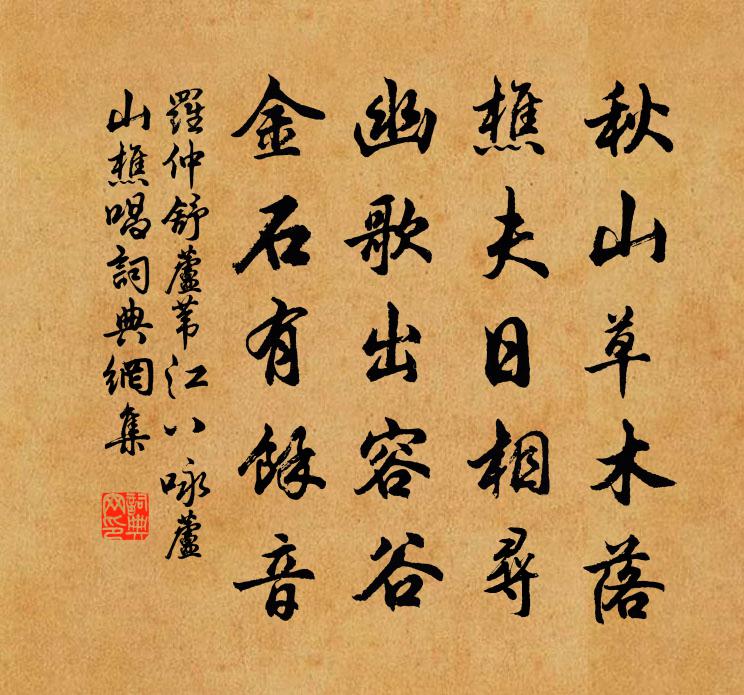 秋山草木落
樵夫日相尋
幽歌出容谷
金石有餘音
羅仲舒蘆葦江八咏蘆
山樵唱詞典網集
詞典網印